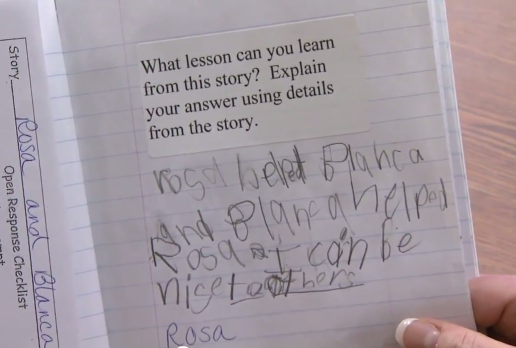 Story Rosa and Blanca
Open Response Checklist
What lesson can you learn
from this story? Explain
your answer using details
from the story.
rosa Blanca
and Blanca helped
Rosa I can be
nice to others
Rosa